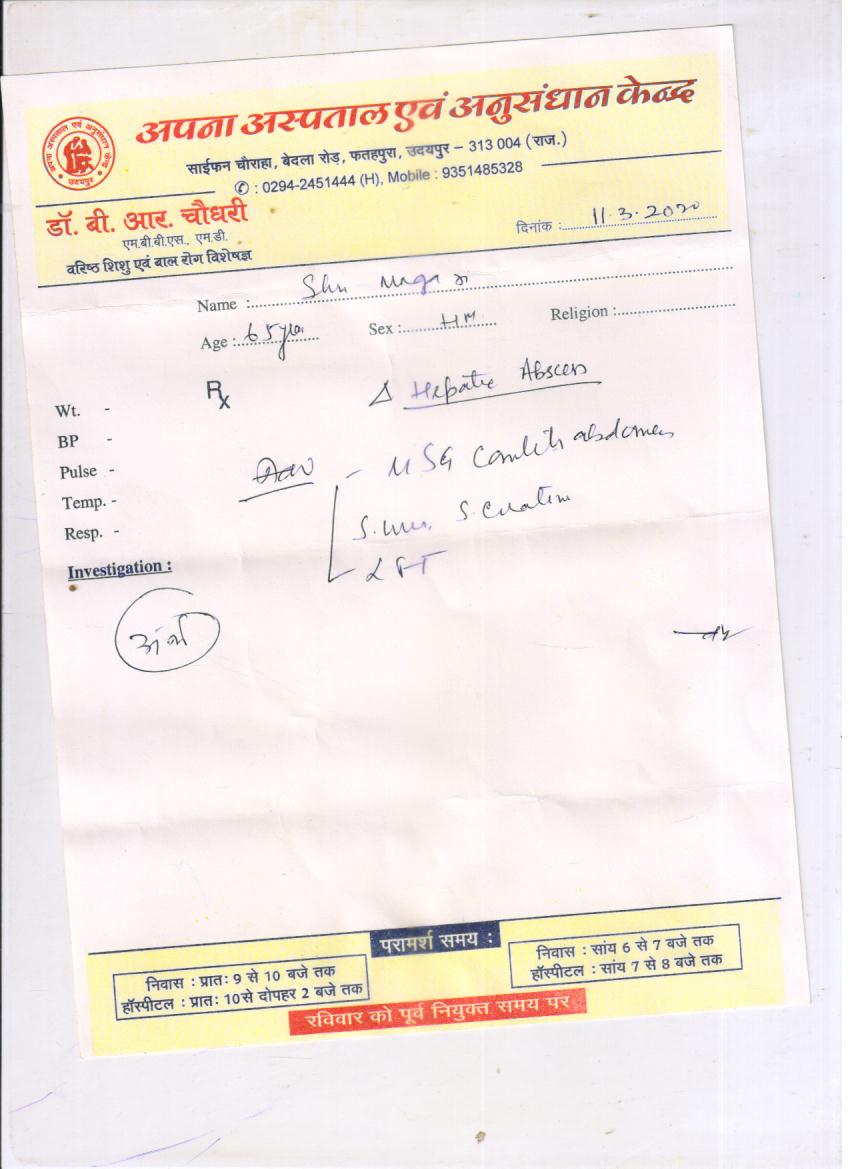 अपना अस्पताल एवं अनुसंधान केन्द्र
साईफन चौराहा, बेदला रोड़, फतहपुरा, उदयपुर – 313 004 (राज.)
✆ : 0294-2451444 (H), Mobile : 9351485328
अपना अस्पताल एवं अनुसंधान केन्द्र
उदयपुर
डॉ. बी. आर. चौधरी
एम.बी.बी.एस., एम.डी.
वरिष्ठ शिशु एवं बाल रोग विशेषज्ञ
दिनांक : 11.3.2020
Name :
Age : 65 Sex : Religion :
Rx
Δ Hepatic Abscess
Wt. -
BP -
Pulse -
Temp. -
Resp. -
- USG abdomen
S. S. Creatinin
LFT
Investigation :
परामर्श समय :
निवास : प्रातः 9 से 10 बजे तक
हॉस्पीटल : प्रातः 10 से दोपहर 2 बजे तक
निवास : सांय 6 से 7 बजे तक
हॉस्पीटल : सांय 7 से 8 बजे तक
रविवार को पूर्व नियुक्त समय पर